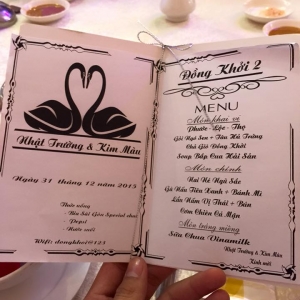 Nhật Trường & Kim Màu
Ngày 31 tháng 12 năm 2015
Thức uống
- Bia Sài Gòn Special chai
- Pepsi
- Nước suối
Wifi: dongkhoi@123
Đồng Khởi 2
MENU
Món khai vị
Phước - Lộc - Thọ
Gỏi Ngó Sen + Tôm Hỏa Tiễn
Chả Giò Đồng Khởi
Soup Bắp Cua Hải Sản
Món chính
Nai Né Ngũ Sắc
Gà Nấu Tiềm Xanh + Bánh Mì
Lẩu Nấm Vị Thái + Bún
Cơm Chiên Cá Mặn
Món tráng miệng
Sữa Chua Vinamilk
Nhật Trường & Kim Màu
Kính mời